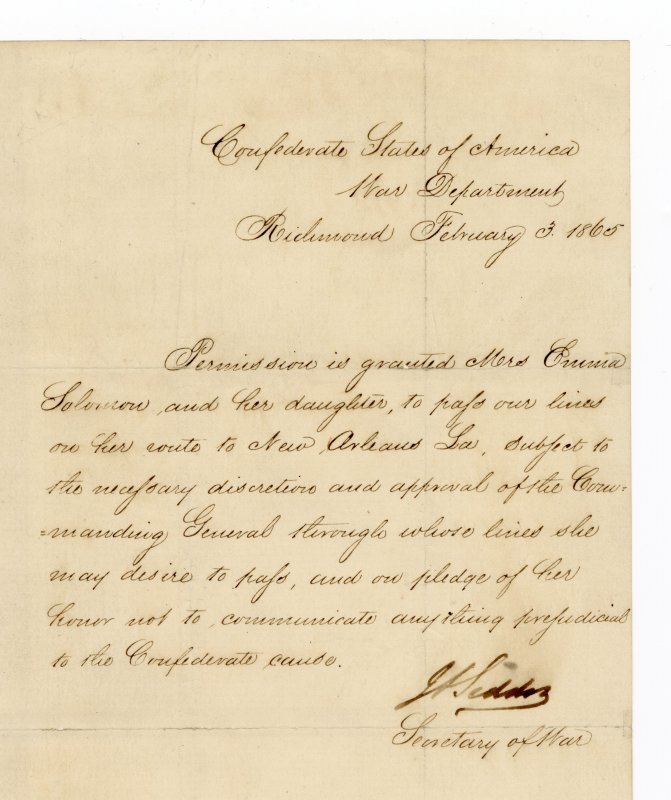 Confederate States of America
War Department
Richmond February 3. 1865
Permission is granted Mrs Emma
Solomon, and her daughter, to pass our lines
on her route to New Orleans La, subject to
the necessary discretion and approval of the Com=
=manding General through whose lines she
may desire to pass, and on pledge of her
honor not to communicate anything prejudicial
to the Confederate cause.
J A Seddon
Secretary of War